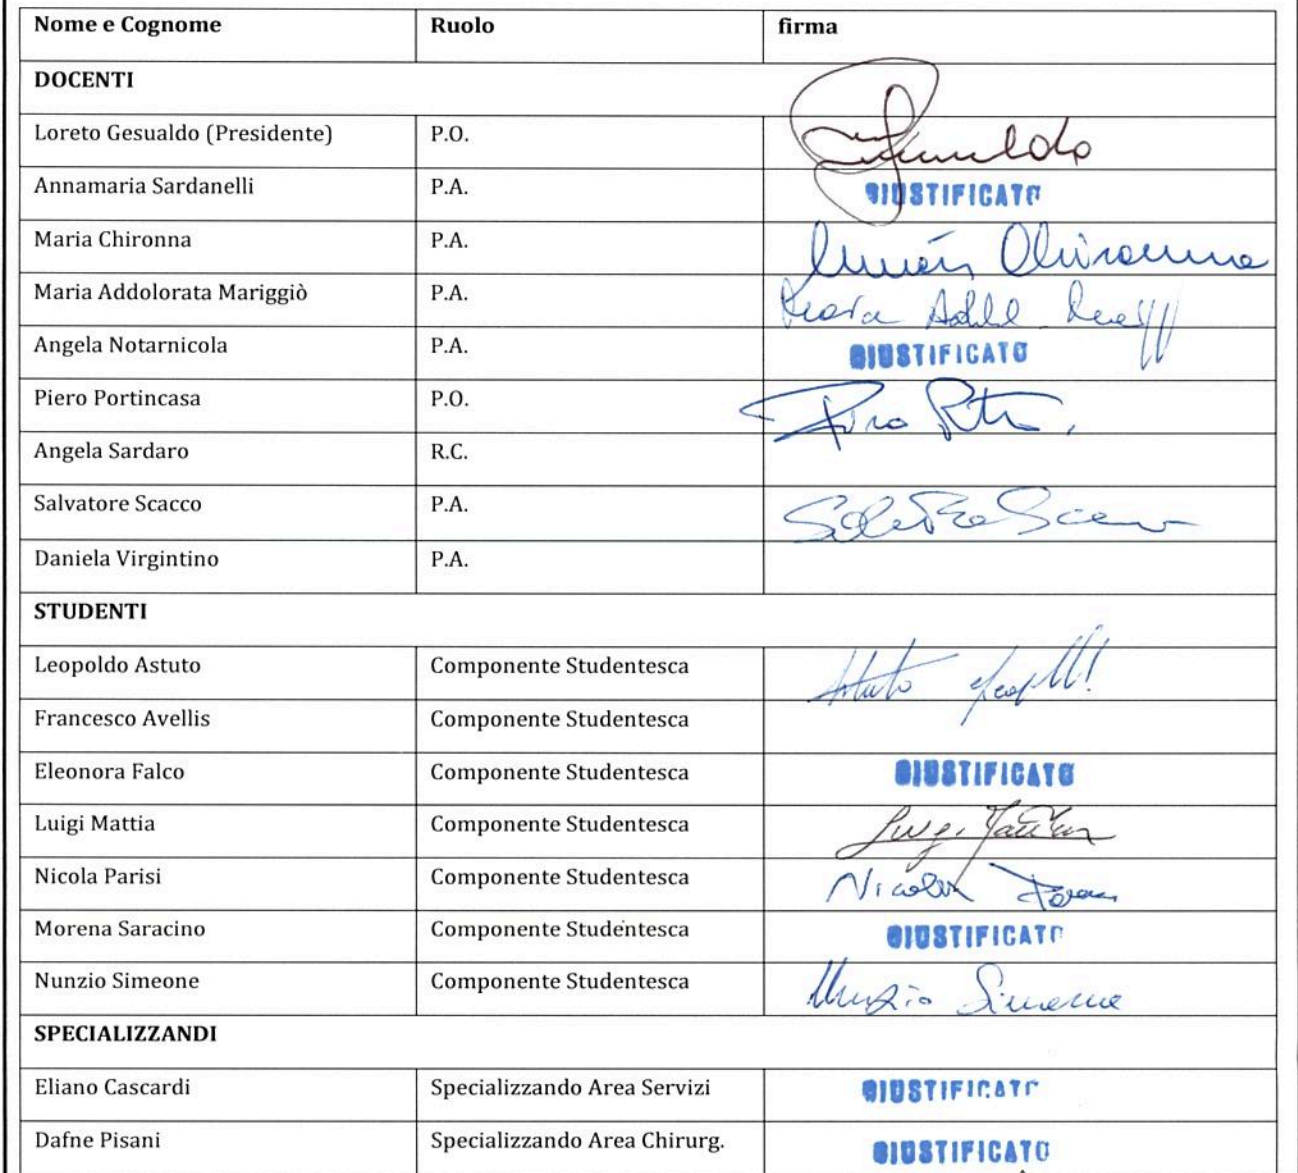 Nome e Cognome Ruolo firma
DOCENTI
Loreto Gesualdo (Presidente) P.O.
Annamaria Sardanelli P.A. GIUSTIFICATO
Maria Chironna P.A. Chironna
Maria Addolorata Mariggiò P.A.
Angela Notarnicola P.A. GIUSTIFICATO
Piero Portincasa P.O.
Angela Sardaro R.C.
Salvatore Scacco P.A.
Daniela Virgintino P.A.
STUDENTI
Leopoldo Astuto Componente Studentesca Astuto
Francesco Avellis Componente Studentesca
Eleonora Falco Componente Studentesca GIUSTIFICATO
Luigi Mattia Componente Studentesca Luigi Mattia
Nicola Parisi Componente Studentesca Nicola
Morena Saracino Componente Studentesca GIUSTIFICATO
Nunzio Simeone Componente Studentesca Nunzio Simeone
SPECIALIZZANDI
Eliano Cascardi Specializzando Area Servizi GIUSTIFICATO
Dafne Pisani Specializzando Area Chirurg. GIUSTIFICATO